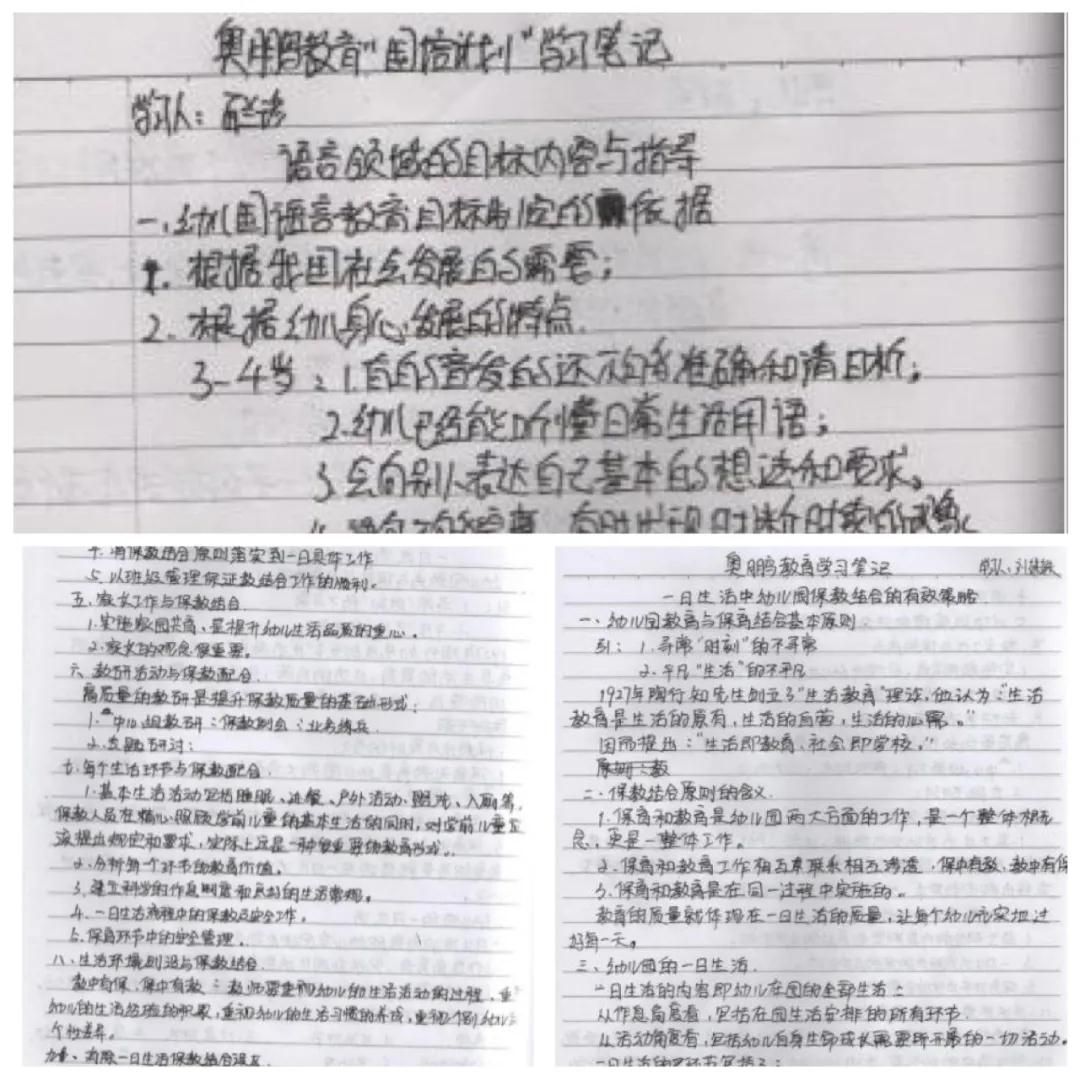 奥鹏教育"国培计划"学习笔记
学习人：
语言领域的目标内容与指导
一、幼儿园语言教育目标制定的依据
1. 根据我国社会发展的需要；
2. 根据幼儿身心发展的特点.
3-4岁：1.有的音发的还不够准确和清晰；
2.幼儿已经能听懂日常生活用语；
3.会向别人表达自己基本的想法和要求。
4. 有时出现时断时续的现象
4. 将保教结合原则落实到一日具体工作
5. 以班级管理保证教结合工作的顺利。
五、家长工作与保教结合
1.实施家园共育、是提升幼儿生活品质的重心。
2.家长的观念很重要。
六、教研活动与保教配合
高质量的教研是提升保教质量的基础形式：
1. 中心组教研：保教例会：业务练兵
2.专题研讨：
七、每个生活环节与保教配合.
1.基本生活活动包括睡眠、进餐、户外活动、盥洗、入厕等，
保教人员在精心照顾学前儿童的基本生活的同时，对学前儿童
提出规定和要求，实际上这是一种很重要的教育形式。
2.分析每个环节的教育价值。
3.建立科学的作息制度和良好的生活常规。
4.一日生活流程中的保教及安全工作。
5.保育环节中的安全管理.
八、生活环境创设与保教结合.
教中有保，保中有教：教师要重视幼儿的生活活动的过程，重
幼儿的生活经验的积累，重视幼儿的生活习惯的养成，重视个别幼儿
个性差异。
有限一日生活保教结合
奥鹏教育学习笔记 学习人：刘
一日生活中幼儿园保教结合的有效策略
一、幼儿园教育与保育结合基本原则
引：1.寻常"时刻"的不寻常
2.平凡"生活"的不平凡
1927年陶行知先生创立了"生活教育"理论，他认为："生活
教育是生活的原有，生活的自营，生活的必需。"
因而提出："生活即教育、社会即学校。"
二、保教结合原则的含义.
1.保育和教育是幼儿园两大方面的工作，是一个整体概
念，更是一整体工作。
2.保育和教育工作相互联系相互渗透，保中有教，教中有保
3.保育和教育是在同一过程中实施的。
教育的质量就体现在一日生活的质量，让每个幼儿充实地过
好每一天。
三、幼儿园的一日生活.
一日生活的内容即幼儿在园的全部生活：
从作息角度看，包括在园生活安排的所有环节
从活动角度看，包括幼儿自身生命成长需要所开展的一切活动。
一日生活的环节包括：